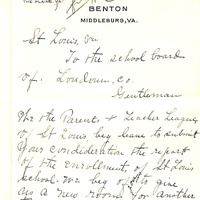 THE PLAINS, VA.
BENTON
MIDDLEBURG, VA.
St Louis, Va
To the school board
of. Loudoun, co.
Gentleman
We the Parents + Teacher League
of St Louis beg leave to submit
your condideration the report
of the enrollment, of St Louis
school. We beg of to give
us a new room for another